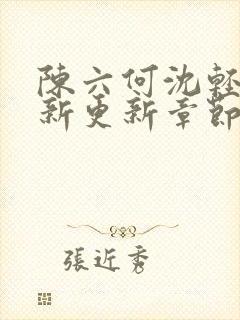 陳六何沈輕
新更新章節
張近秀